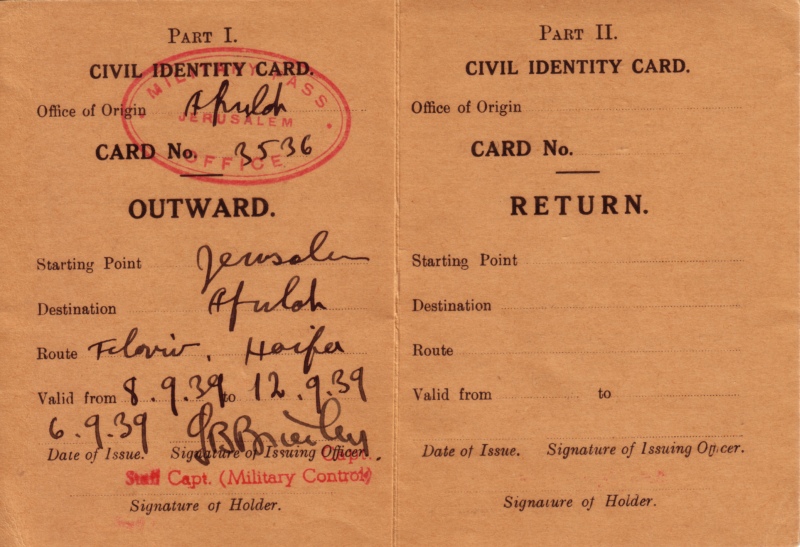 PART I.
CIVIL IDENTITY CARD.
Office of Origin Afulah
MILITARY PASS
JERUSALEM
OFFICE
CARD No. 3536
OUTWARD.
Starting Point Jerusalem
Destination Afulah
Route Telaviv, Haifa
Valid from 8.9.39 to 12.9.39
6.9.39
Date of Issue. Signature of Issuing Officer.
Capt.
Staff Capt. (Military Control)
Signature of Holder.
PART II.
CIVIL IDENTITY CARD.
Office of Origin
CARD No.
RETURN.
Starting Point
Destination
Route
Valid from to
Date of Issue. Signature of Issuing Officer.
Signature of Holder.